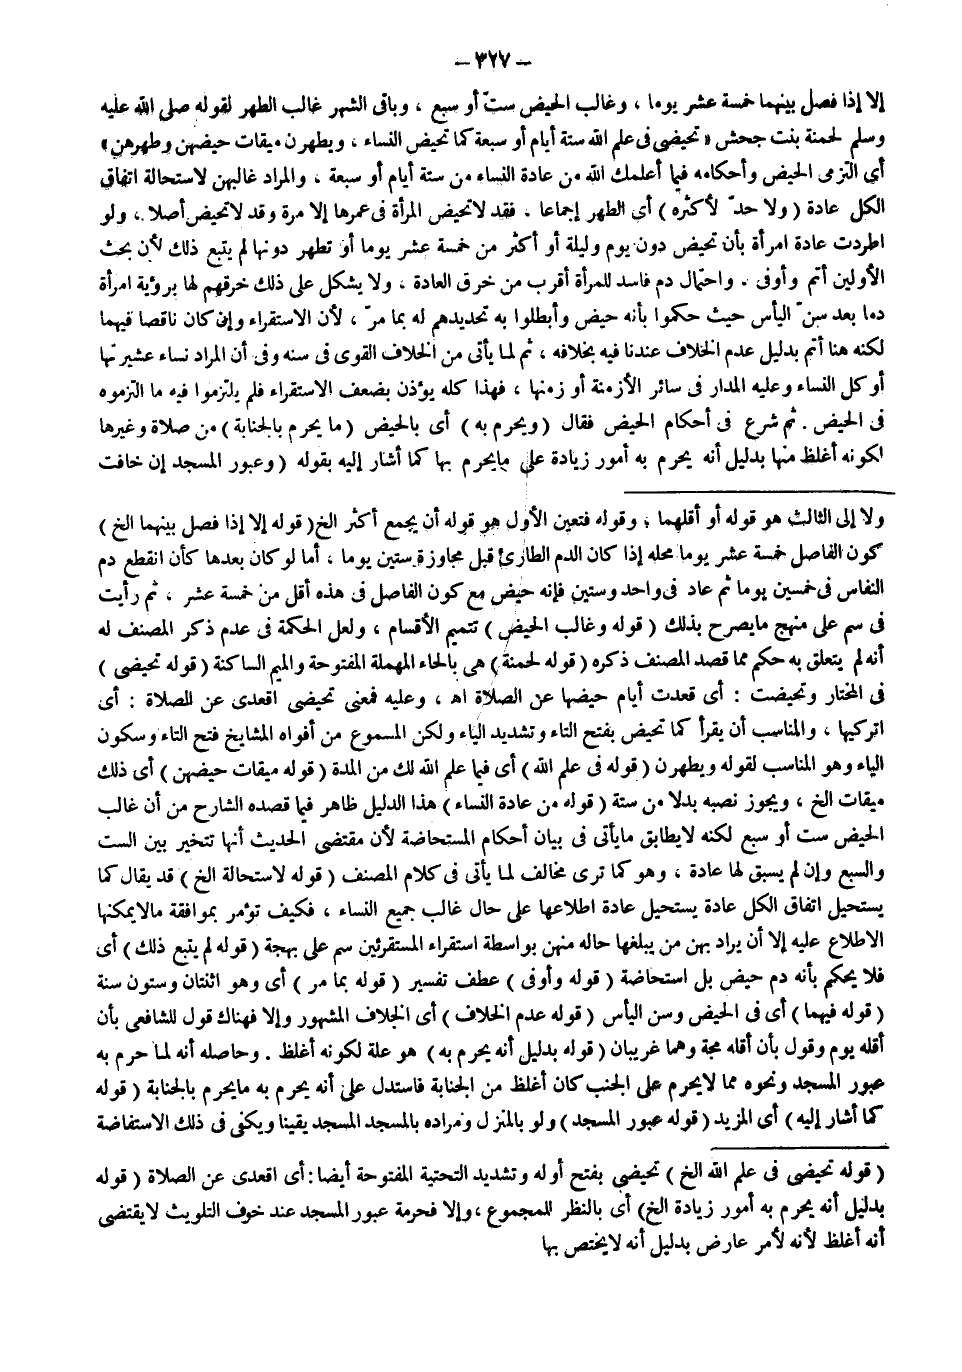 — ٣٢٧ —
إلا إذا فصل بينهما خمسة عشر يوما ، وغالب الحيض ستّ أو سبع ، وباقى الشهر غالب الطهر لقوله صلى الله عليه
وسلم لحمنة بنت جحش « تحيضى فى علم الله ستة أيام أو سبعة كما تحيض النساء ، ويطهرن ميقات حيضهن وطهرهن »
أى التزمى الحيض وأحكامه فيما أعلمك الله من عادة النساء من ستة أيام أو سبعة ، والمراد غالبهن لاستحالة اتفاق
الكل عادة ( ولا حدّ لأكثره ) أى الطهر إجماعا ، فقد لاتحيض المرأة فى عمرها إلا مرة وقد لاتحيض أصلا ، ولو
اطردت عادة امرأة بأن تحيض دون يوم وليلة أو أكثر من خمسة عشر يوما أو تطهر دونها لم يتبع ذلك لأن بحث
الأولين أتم وأوفى ، واحتمال دم فاسد للمرأة أقرب من خرق العادة ، ولا يشكل على ذلك خرقهم لها برؤية امرأة
دما بعد سنّ اليأس حيث حكموا بأنه حيض وأبطلوا به تحديدهم له بما مرّ ، لأن الاستقراء وإن كان ناقصا فيهما
لكنه هنا أتم بدليل عدم الخلاف عندنا فيه بخلافه ، ثم لما يأتى من الخلاف القوى فى سنه وفى أن المراد نساء عشيرتها
أو كل النساء وعليه المدار فى سائر الأزمنة أو زمنها ، فهذا كله يؤذن بضعف الاستقراء فلم يلتزموا فيه ما التزموه
فى الحيض . ثم شرع فى أحكام الحيض فقال ( ويحرم به ) أى بالحيض ( ما يحرم بالجنابة ) من صلاة وغيرها
لكونه أغلظ منها بدليل أنه يحرم به أمور زيادة على مايحرم بها كما أشار إليه بقوله ( وعبور المسجد إن خافت
ولا إلى الثالث هو قوله أو أقلهما ، وقوله فتعين الأول هو قوله أن يجمع أكثر الخ ( قوله إلا إذا فصل بينهما الخ )
كون الفاصل خمسة عشر يوما محله إذا كان الدم الطارئ قبل مجاوزة ستين يوما ، أما لو كان بعدها كأن انقطع دم
النفاس فى خمسين يوما ثم عاد فى واحد وستين فإنه حيض مع كون الفاصل فى هذه أقل من خمسة عشر ، ثم رأيت
فى سم على منهج مايصرح بذلك ( قوله وغالب الحيض ) تتميم الأقسام ، ولعل الحكمة فى عدم ذكر المصنف له
أنه لم يتعلق به حكم مما قصد المصنف ذكره ( قوله لحمنة ) هى بالحاء المهملة المفتوحة والميم الساكنة ( قوله تحيضى )
فى المختار وتحيضت : أى قعدت أيام حيضها عن الصلاة اه ، وعليه فمعنى تحيضى اقعدى عن الصلاة : أى
اتركيها ، والمناسب أن يقرأ كما تحيض بفتح التاء وتشديد الياء ولكن المسموع من أفواه المشايخ فتح التاء وسكون
الياء وهو المناسب لقوله ويطهرن ( قوله فى علم الله ) أى فيما علم الله لك من المدة ( قوله ميقات حيضهن ) أى ذلك
ميقات الخ ، ويجوز نصبه بدلا من ستة ( قوله من عادة النساء ) هذا الدليل ظاهر فيما قصده الشارح من أن غالب
الحيض ست أو سبع لكنه لايطابق مايأتى فى بيان أحكام المستحاضة لأن مقتضى الحديث أنها تتخير بين الست
والسبع وإن لم يسبق لها عادة ، وهو كما ترى مخالف لما يأتى فى كلام المصنف ( قوله لاستحالة الخ ) قد يقال كما
يستحيل اتفاق الكل عادة يستحيل عادة اطلاعها على حال غالب جميع النساء ، فكيف تؤمر بموافقة مالايمكنها
الاطلاع عليه إلا أن يراد بهن من يبلغها حاله منهن بواسطة استقراء المستقرئين سم على بهجة ( قوله لم يتبع ذلك ) أى
فلا يحكم بأنه دم حيض بل استحاضة ( قوله وأوفى ) عطف تفسير ( قوله بما مر ) أى وهو اثنتان وستون سنة
( قوله فيهما ) أى فى الحيض وسن اليأس ( قوله عدم الخلاف ) أى الخلاف المشهور وإلا فهناك قول للشافعى بأن
أقله يوم وقول بأن أقله مجة وهما غريبان ( قوله بدليل أنه يحرم به ) هو علة لكونه أغلظ . وحاصله أنه لما حرم به
عبور المسجد ونحوه مما لايحرم على الجنب كان أغلظ من الجنابة فاستدل على أنه يحرم به مايحرم بالجنابة ( قوله
كما أشار إليه ) أى المزيد ( قوله عبور المسجد ) ولو بالمنزل ومراده بالمسجد المسجد يقينا ويكفى فى ذلك الاستفاضة
( قوله تحيضى فى علم الله الخ ) تحيضى بفتح أوله وتشديد التحتية المفتوحة أيضا : أى اقعدى عن الصلاة ( قوله
بدليل أنه يحرم به أمور زيادة الخ ) أى بالنظر للمجموع ، وإلا فحرمة عبور المسجد عند خوف التلويث لايقتضى
أنه أغلظ لأنه لأمر عارض بدليل أنه لايختص بها